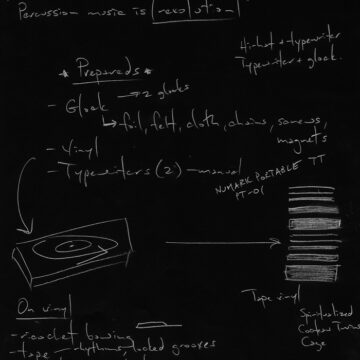 Percussion music is revolution
Hi-hat + typewriter
Typewriter + glock.
* Prepareds *
- Glock → 2 glocks
↳ foil, felt, cloth, chains, screws,
magnets
- Vinyl
- Typewriters (2) - manual
NUMARK PORTABLE TT
PT-01
Tape vinyl
Spiritualized
Cocteau Twins
Cage
On vinyl
- ricochet bowing
- tape - rhythms, locked grooves